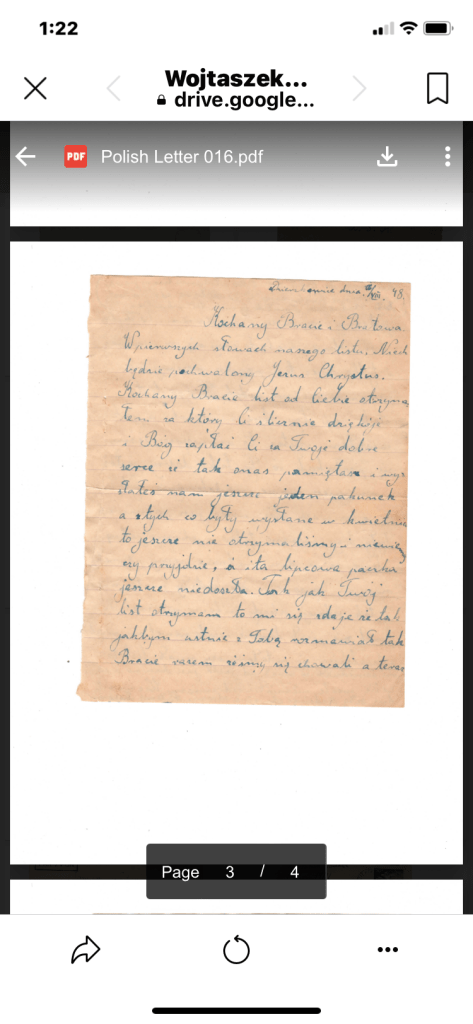 1:22
Wojtaszek...
drive.google...
PDF Polish Letter 016.pdf
dnia 48.
Kochany Bracie i Bratowa
W pierwszych słowach naszego listu, Niech
będzie pochwalony Jezus Chrystus.
Kochany Bracie list od Ciebie otrzyma
łem za który Ci ślicznie dziękuje
i Bóg zapłać Ci za Twoje dobre
serce że tak onas pamiętasz i wy
słałeś nam jeszcze jeden pakunek
a z tych co były wysłane w kwietniu
to jeszcze nie otrzymaliśmy i niewiemy
czy przyjdzie, a i ta lipcowa paczka
jeszcze niedoszła. Tak jak Twój
list otrzymam to mi się zdaje że tak
jakbym ustnie z Tobą rozmawiał tak
Bracie razem żeśmy się chowali a teraz
Page 3 / 4